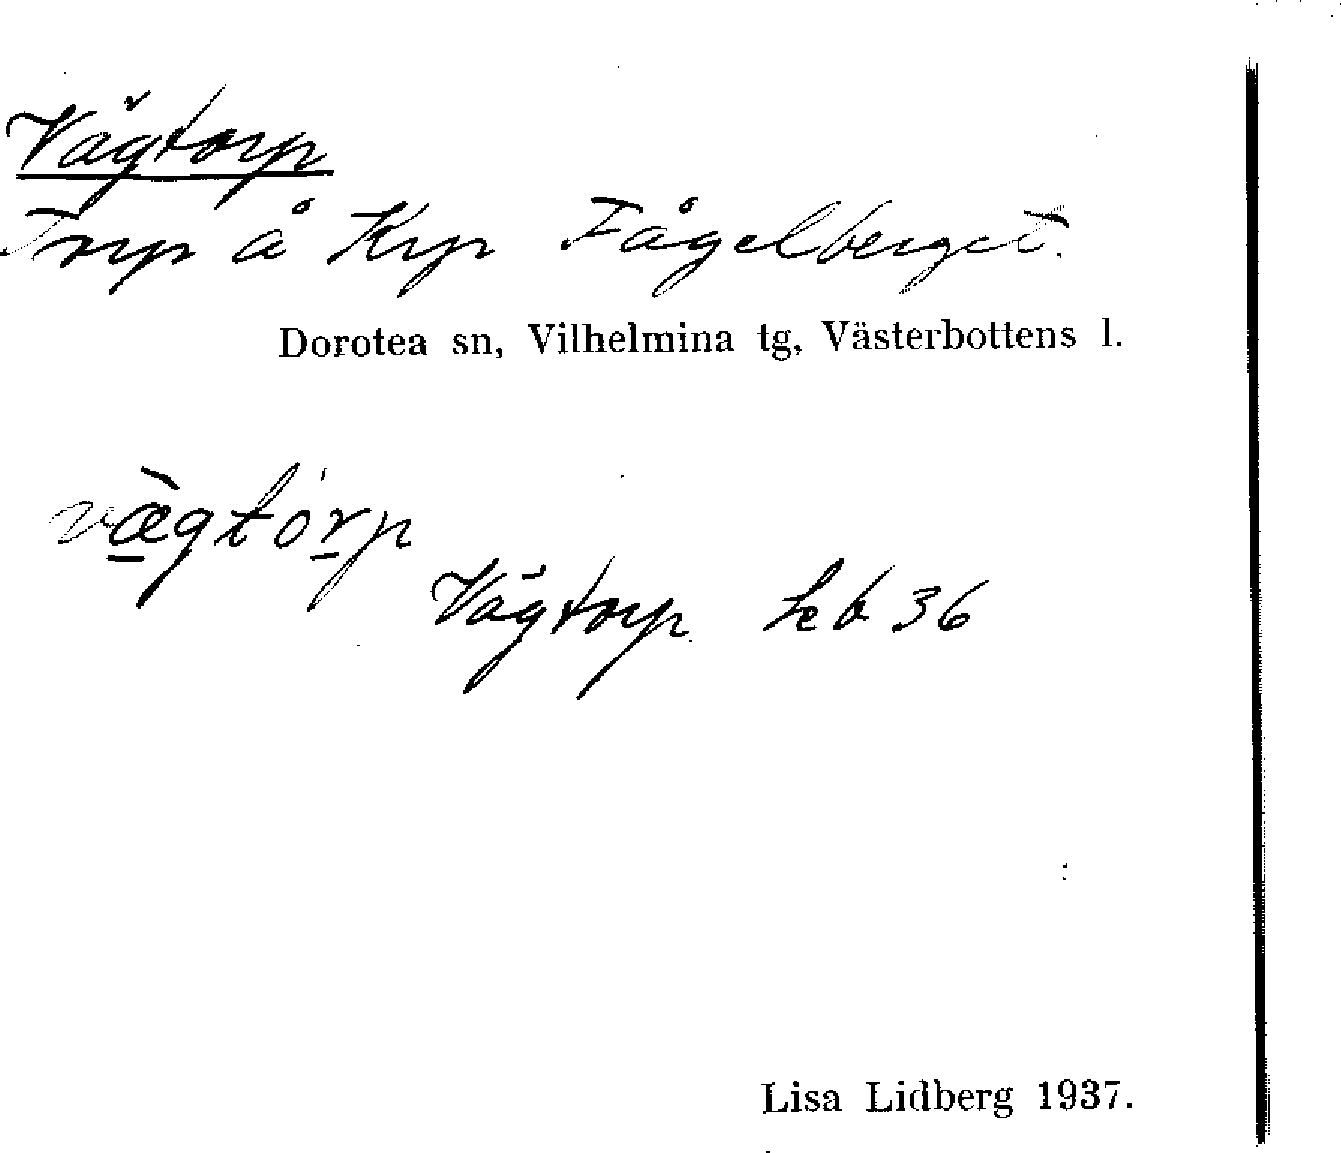 Vägtorp
Torp å Krp Fågelberget.
Dorotea sn, Vilhelmina tg, Västerbottens l.
væ̀gtórp
Vägtorp hb 36
Lisa Lidberg 1937.